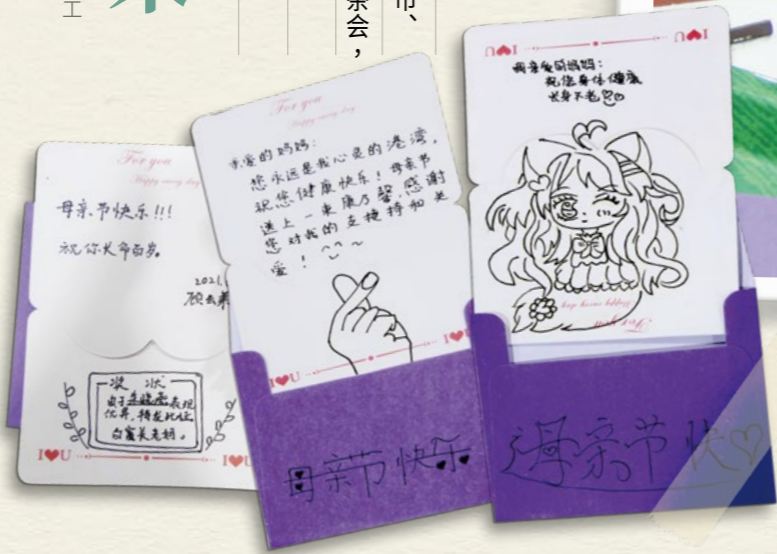 工
茶会，
For you
Happy every day
母亲节快乐!!!
祝你长命百岁。
2021.
奖 状
由于
表现
优异，特发此证
白富美老妈。
I♥U
I♥U
For you
Happy every day
亲爱的妈妈：
您永远是我心灵的港湾，
祝您健康快乐！母亲节
送上一束康乃馨，感谢
您对我的支持和关
爱！
I♥U
I♥
母亲节快乐
I♥U
I♥U
母亲爱的妈妈：
祝您身体健康
长身不老
For you
Happy every day
母亲节快♡